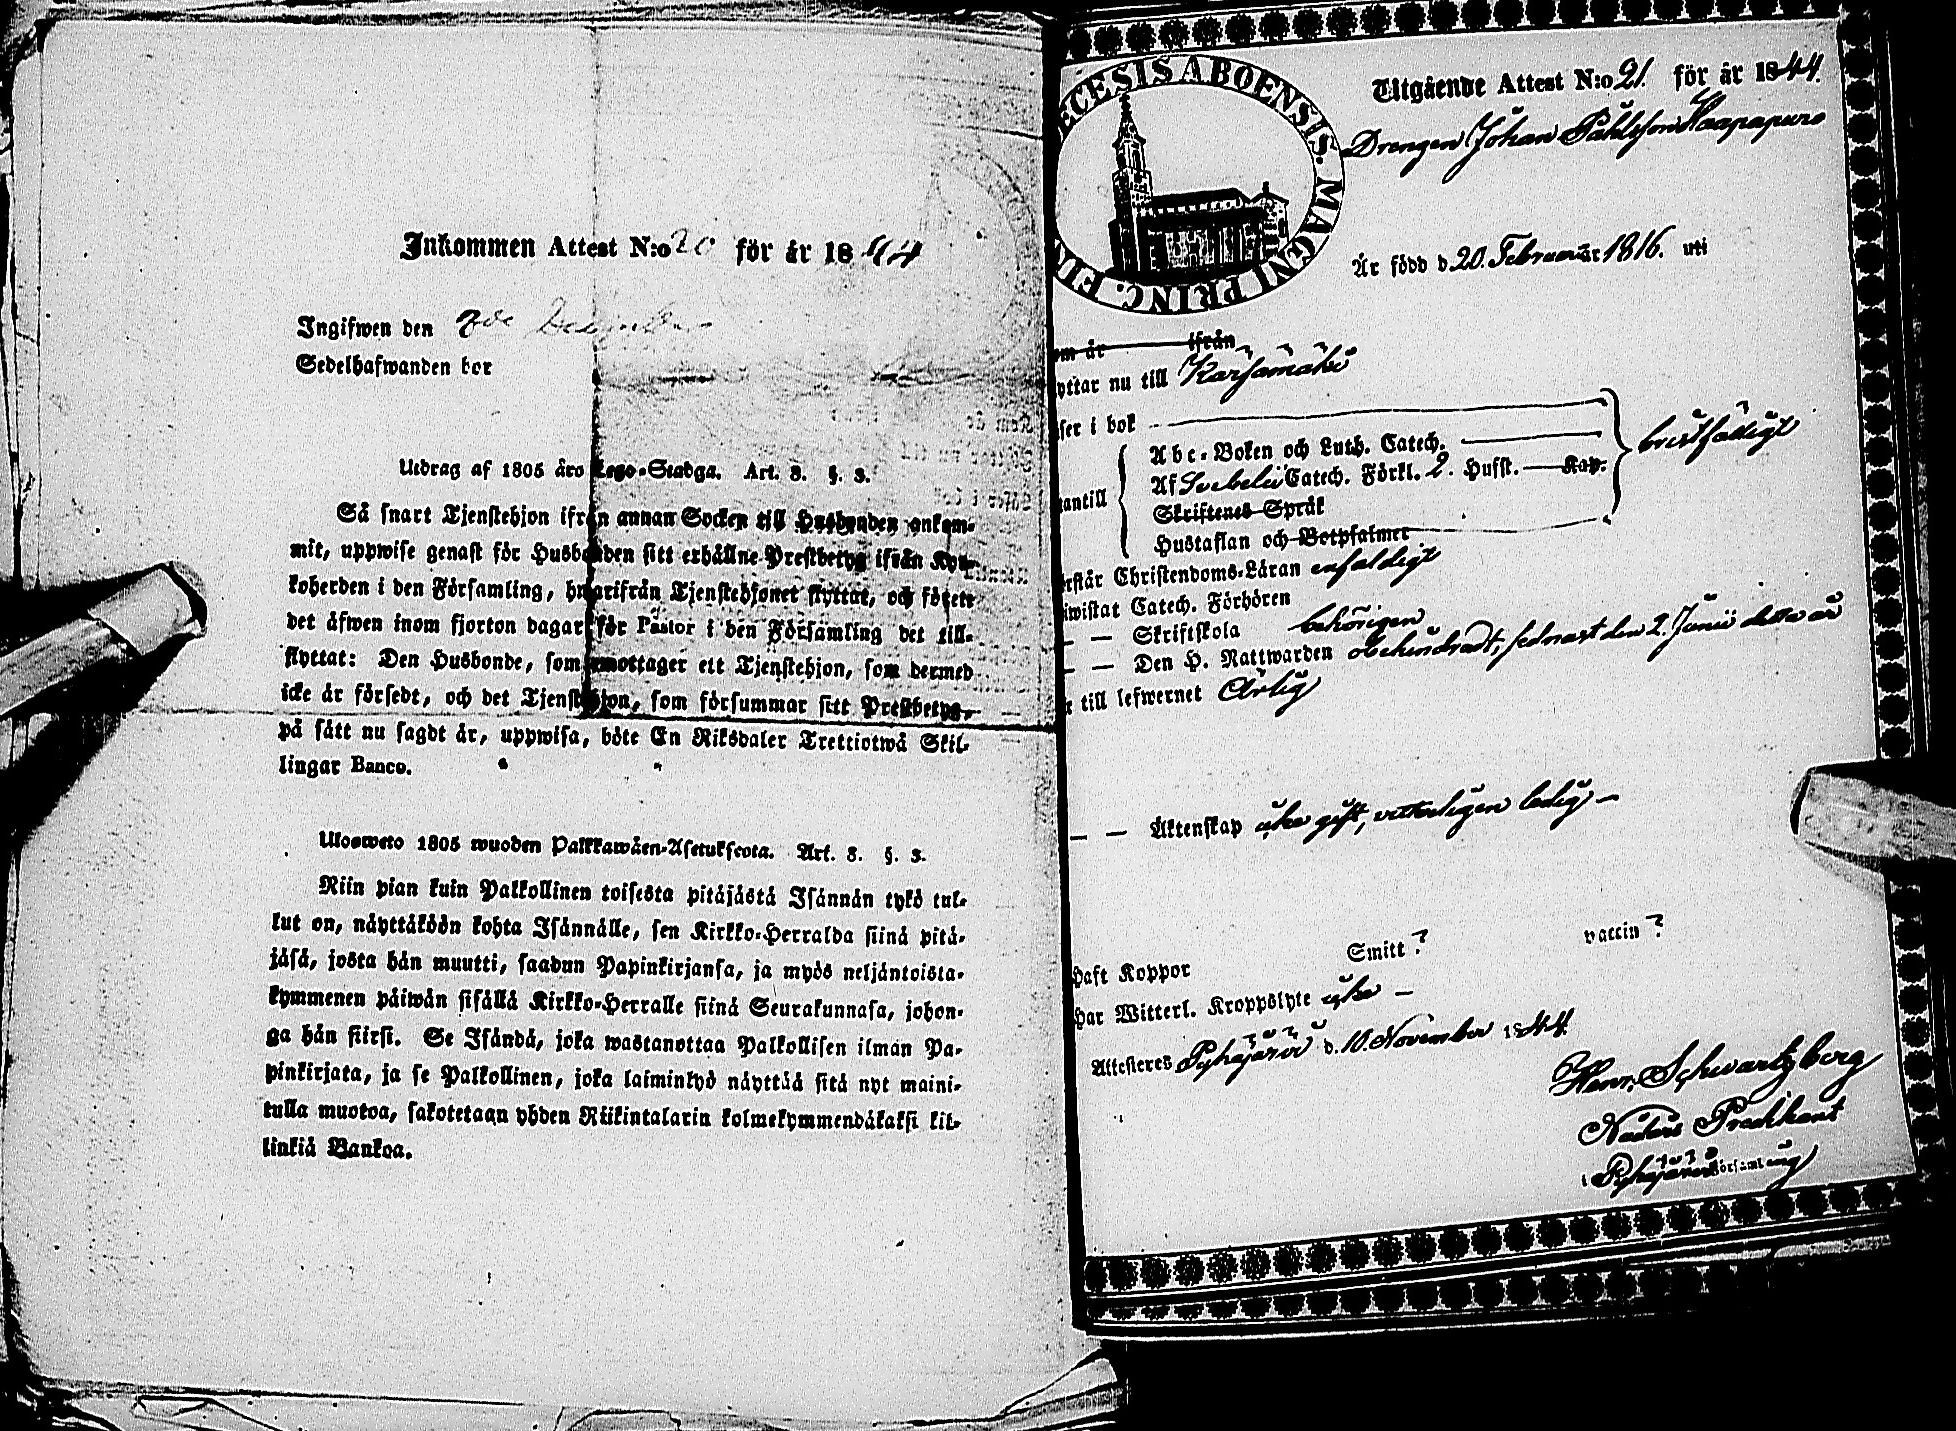 Inkommen Attest N:o 20 för år 1844
Ingifwen den 7de December
Sedelhafwanden bor
Utdrag af 1805 års Lego-Stadga. Art. 8. §. 3.
Så snart Tjenstehjon ifrån annan Socken till Husbonden ankom-
mit, uppwise genast för Husbonden sitt erhållne Prestbetyg ifrån Kyr-
koherden i den Församling, hwarifrån Tjenstehjonet flyttat, och förete
det äfwen inom fjorton dagar för Pastor i den Församling det till-
flyttat: Den Husbonde, som emottager ett Tjenstehjon, som dermed
icke är försedt, och det Tjenstehjon, som försummar sitt Prestbetyg,
på sätt nu sagdt är, uppwisa, böte En Riksdaler Trettiotwå Skil-
lingar Banco.
Ulosweto 1805 wuoden Palkkawäen-Asetuksesta. Art. 8. §. 3.
Niin pian kuin Palkollinen toisesta pitäjästä Isännän tykö tul-
lut on, näyttäköön kohta Isännälle, sen Kirkko-Herralda siinä pitä-
jäsä, josta hän muutti, saadun Papinkirjansa, ja myös neljäntoista-
kymmenen päiwän sisällä Kirkko-Herralle siinä Seurakunnasa, johon-
ga hän siirsi. Se Isändä, joka wastanottaa Palkollisen ilman Pa-
pinkirjata, ja se Palkollinen, joka laiminlyö näyttää sitä nyt maini-
tulla muotoa, sakotetaan yhden Riikintalarin kolmekymmendäkaksi kil-
linkiä Bankoa.
ECESIS ABOENSIS. MAGNI PRINC. FIN
Utgående Attest N:o 21. för år 1844.
Drengen Johan Påhlsson Haapapuro
Är född d 20. Februari år 1816. uti
om är ifrån
yttar nu till Kärsämäki
ser i bok
Abc-Boken och Luth. Catech.
Af Svebelii Catech. Förkl. 2. Husst. Kap. bristfälligt
antill
Skriftenes Språk
Hustaflan och Botpsalmer
rstår Christendoms-Läran enfaldigt
iwistat Catech. Förhören
— — Skriftskola behörigen
— — Den H. Nattwarden obehindradt, sednast den 2. Junii detta år
r till lefwernet Ärlig
— — Äktenskap icke gift, vitterligen ledig —
Haft Koppor Smitt ? vaccin ?
Har Witterl. Kroppslyte icke —
Attesteres Pyhäjärvi d. 10. November 1844.
Henr. Schwartzberg
Nådårs Predikant
i Pyhäjärvi Församling